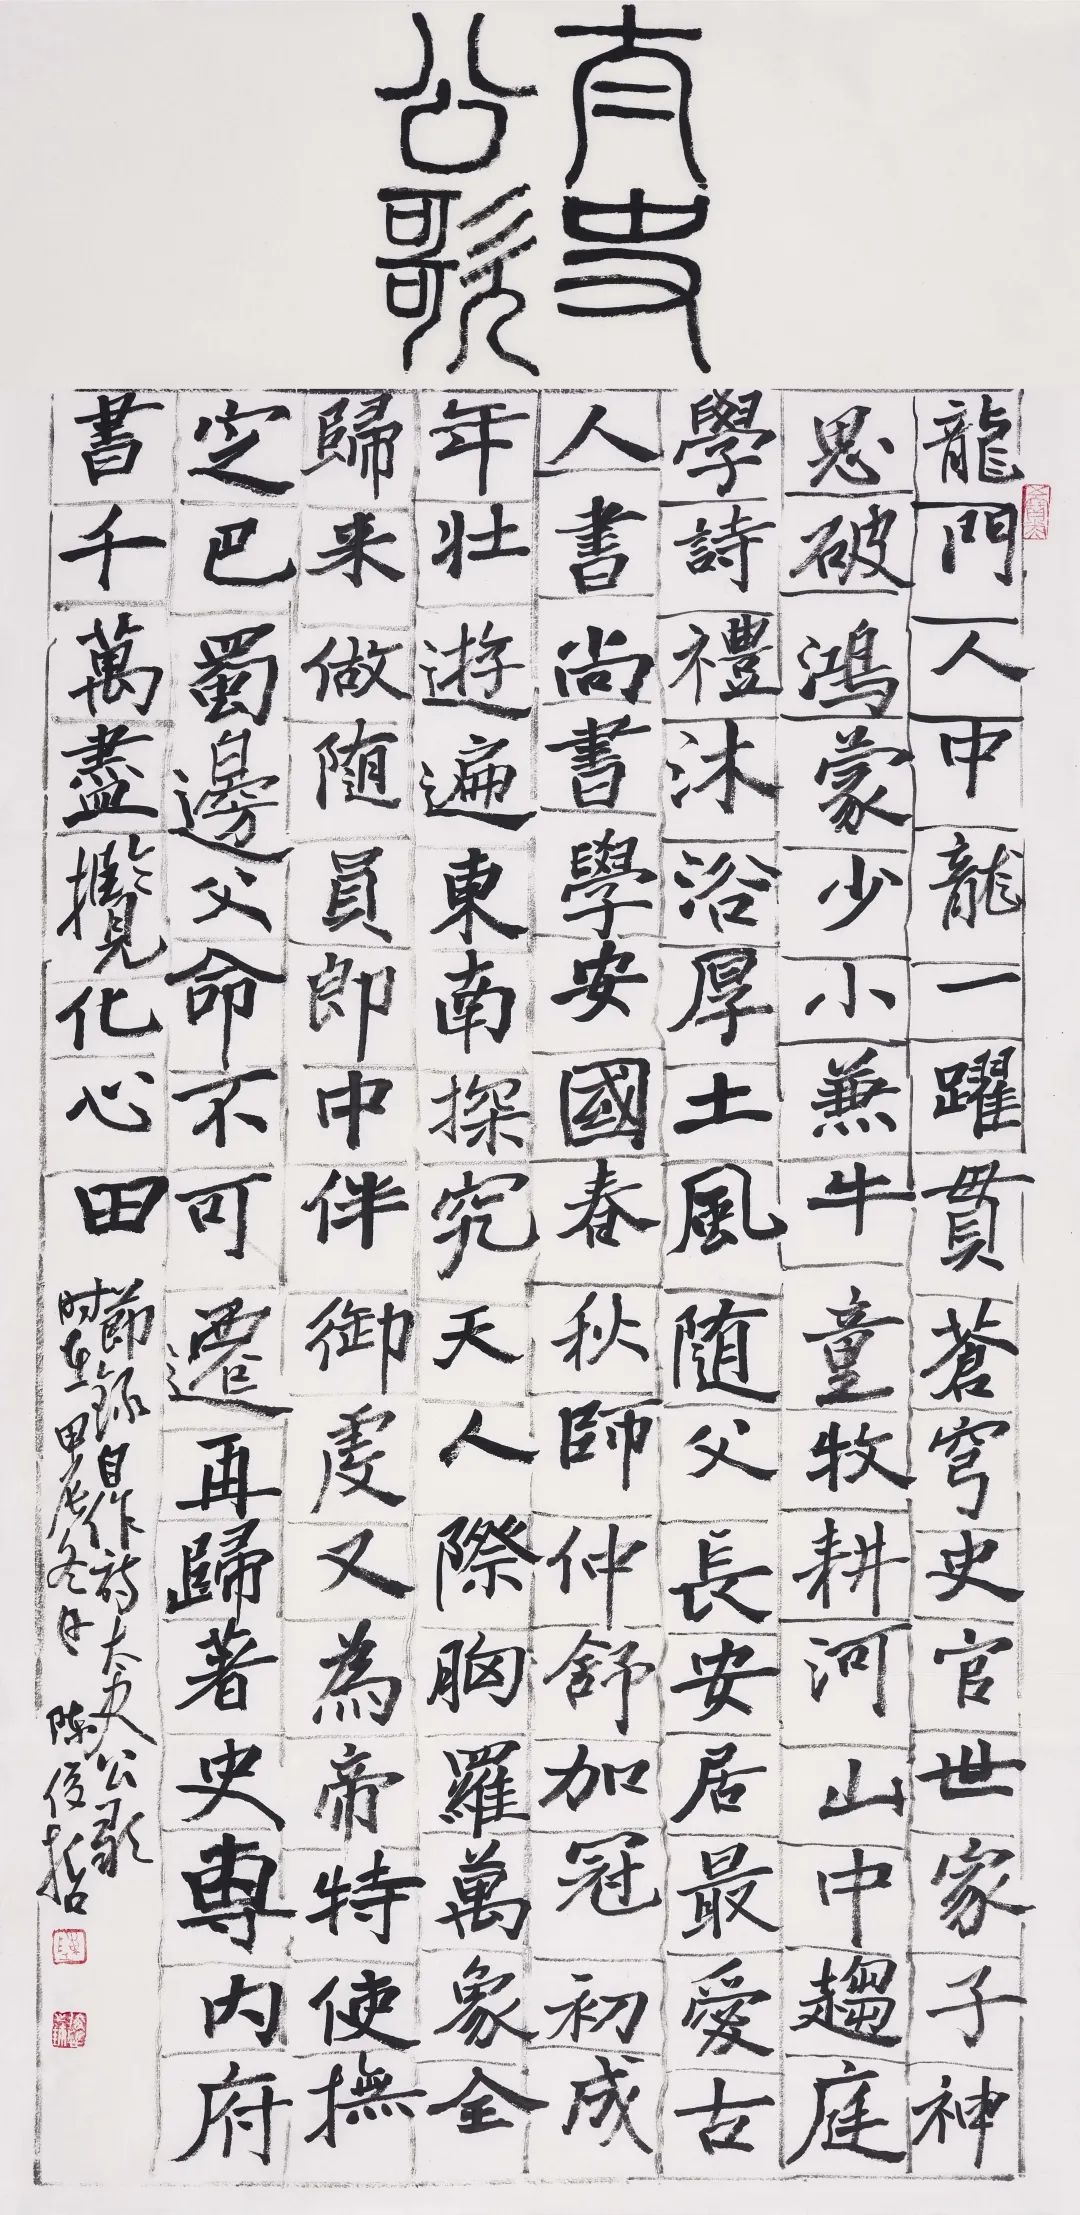 太史
公歌
龍門人中龍一躍貫蒼穹史官世家子神
思破鴻蒙少小兼牛童牧耕河山中趨庭
學詩禮沐浴厚土風随父長安居最愛古
人書尚書學安國春秋師仲舒加冠初成
年壯遊遍東南探究天人際胸羅萬象全
歸来做随員郎中伴御虔又為帝特使撫
定巴蜀邊父命不可遷再歸著史專内府
書千萬盡攬化心田
節錄自作詩太史公歌
时在甲辰冬月 陈俊哲